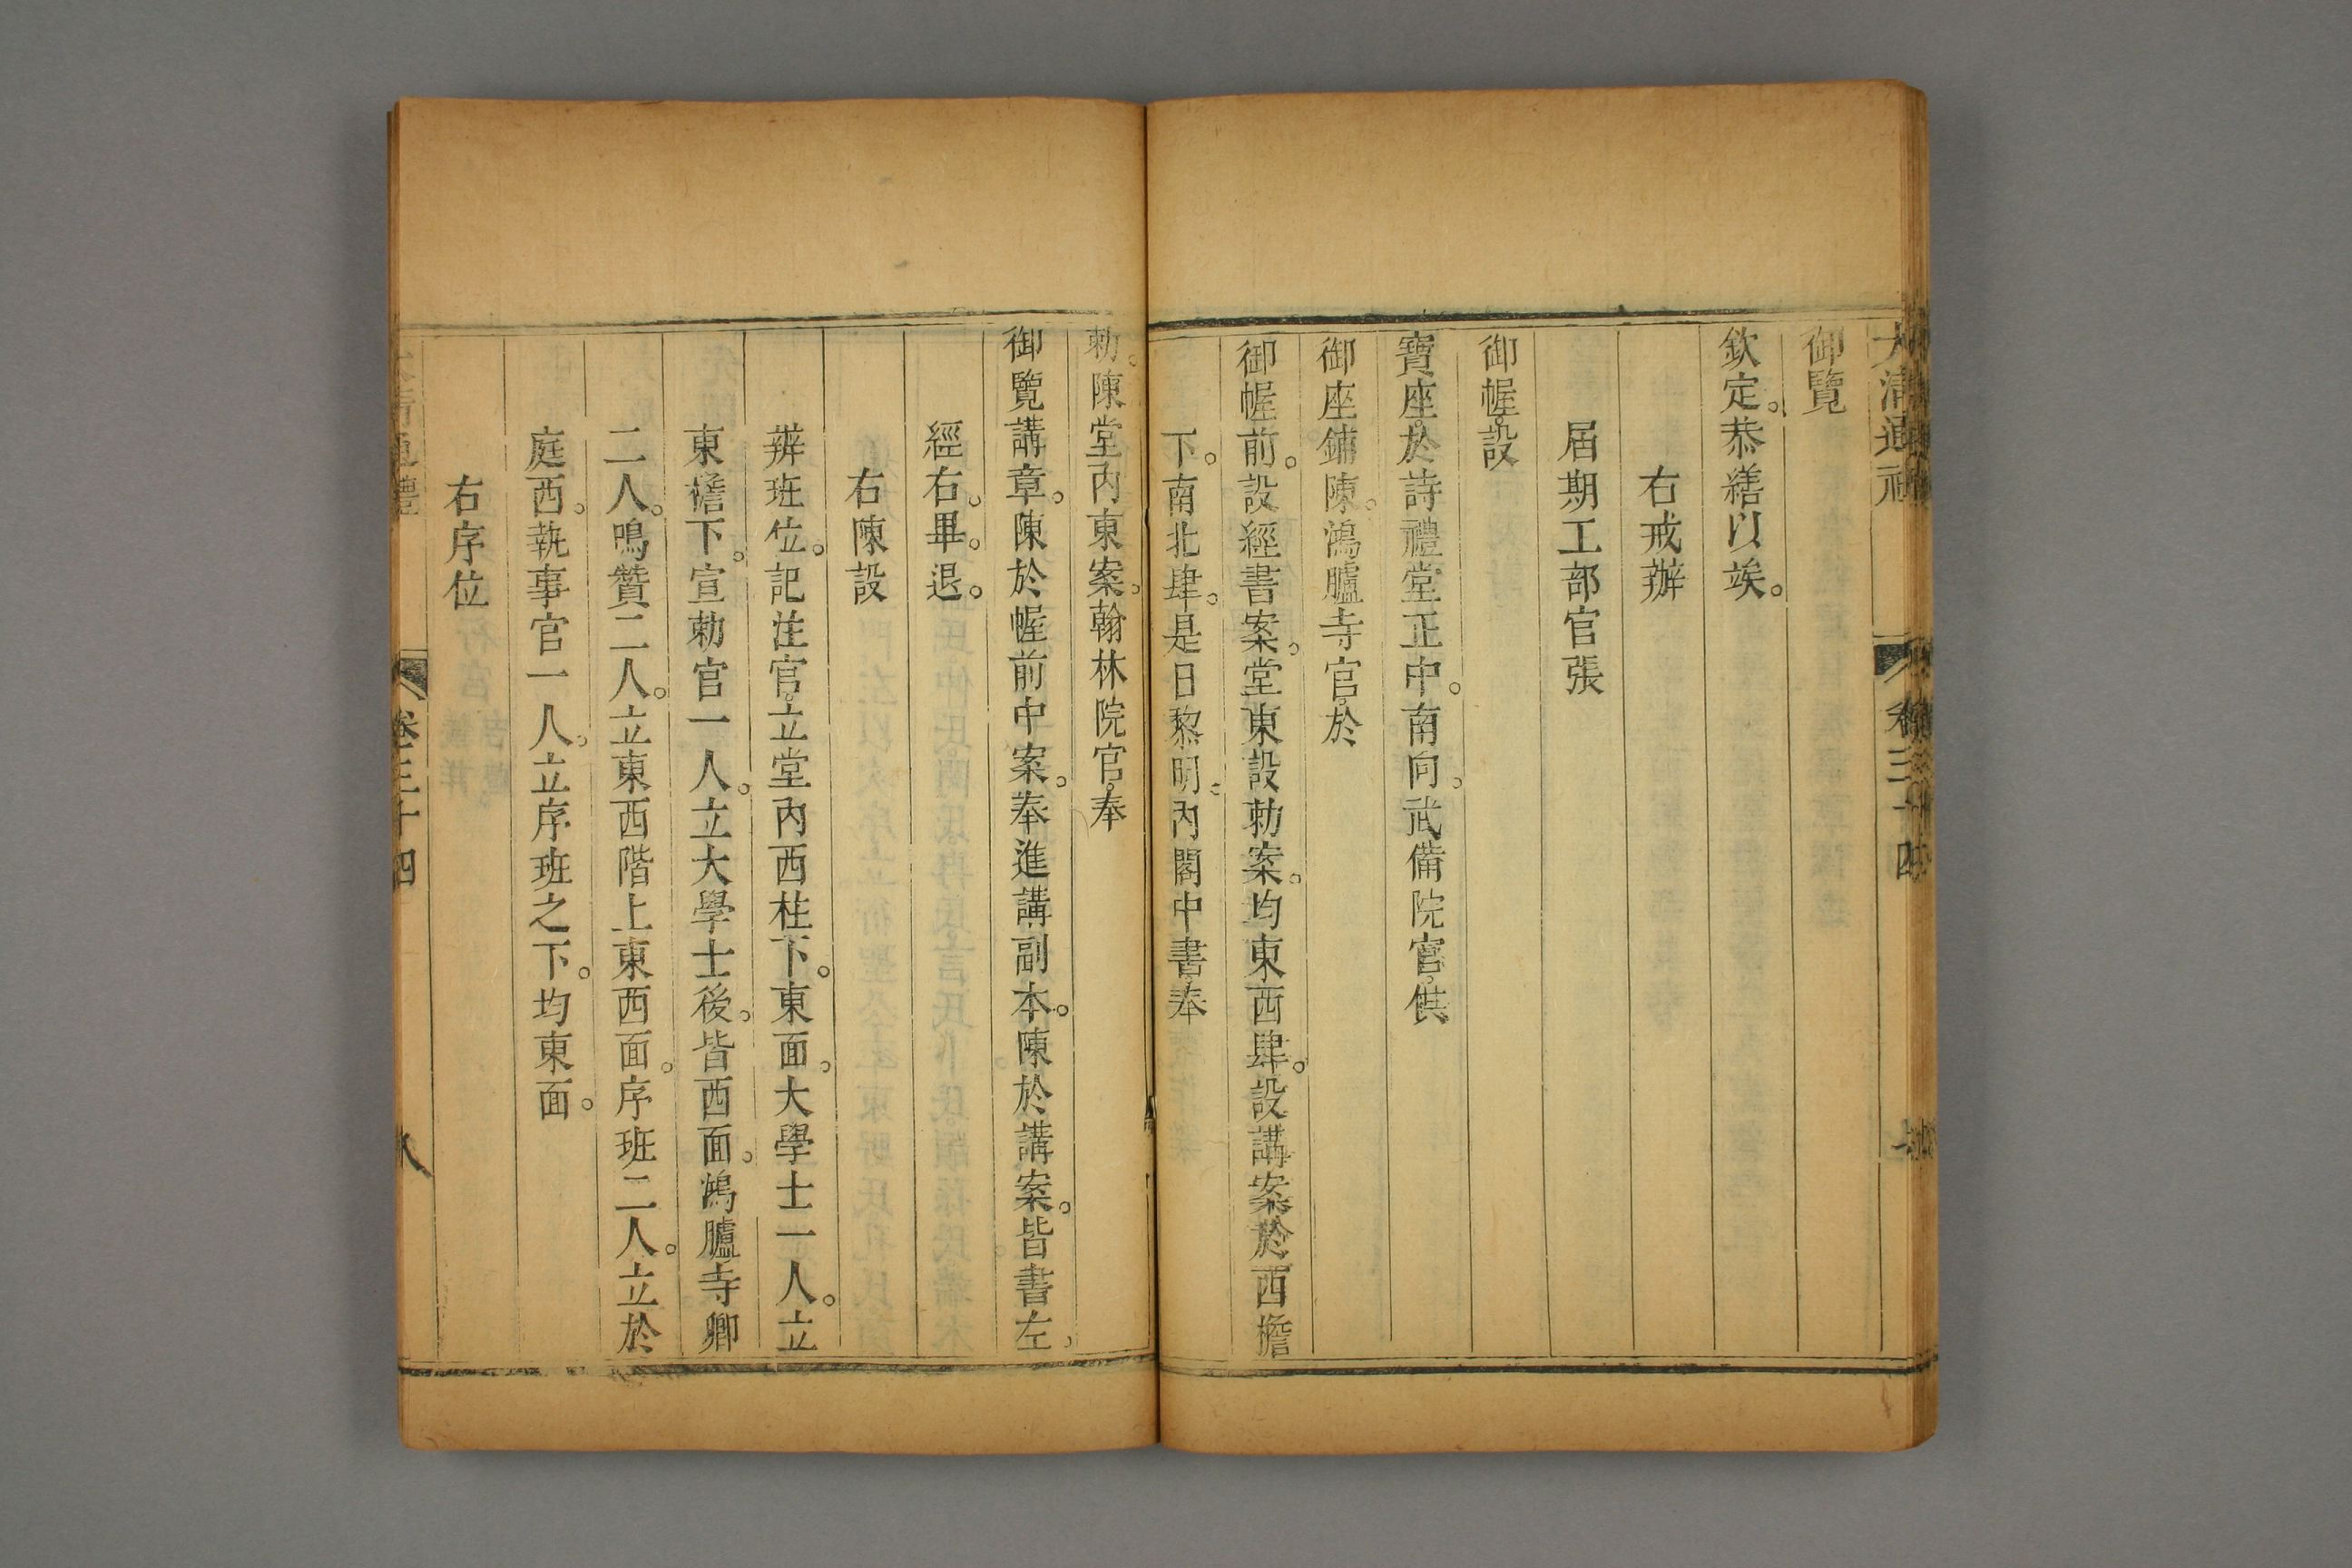 大清通禮 卷三十四
御覽
欽定。恭繕以竢。
右戒辦
屆期工部官張
御幄。設
寶座。於詩禮堂正中。南向。武備院官。供
御座鋪陳。鴻臚寺官。於
御幄前。設經書案。堂東設勅案。均東西肆。設講案於西檐
下。南北肆。是日黎明。內閣中書。奉
勅。陳堂內東案。翰林院官。奉
御覽講章。陳於幄前中案。奉進講副本。陳於講案。皆書左。
經右。畢。退。
右陳設
辨班位。記注官。立堂內西柱下。東面。大學士一人。立
東檐下。宣勅官一人。立大學士後。皆西面。鴻臚寺卿
二人。鳴贊二人。立東西階上東西面。序班二人。立於
庭西。執事官一人。立序班之下。均東面。
右序位
卷三十四 八